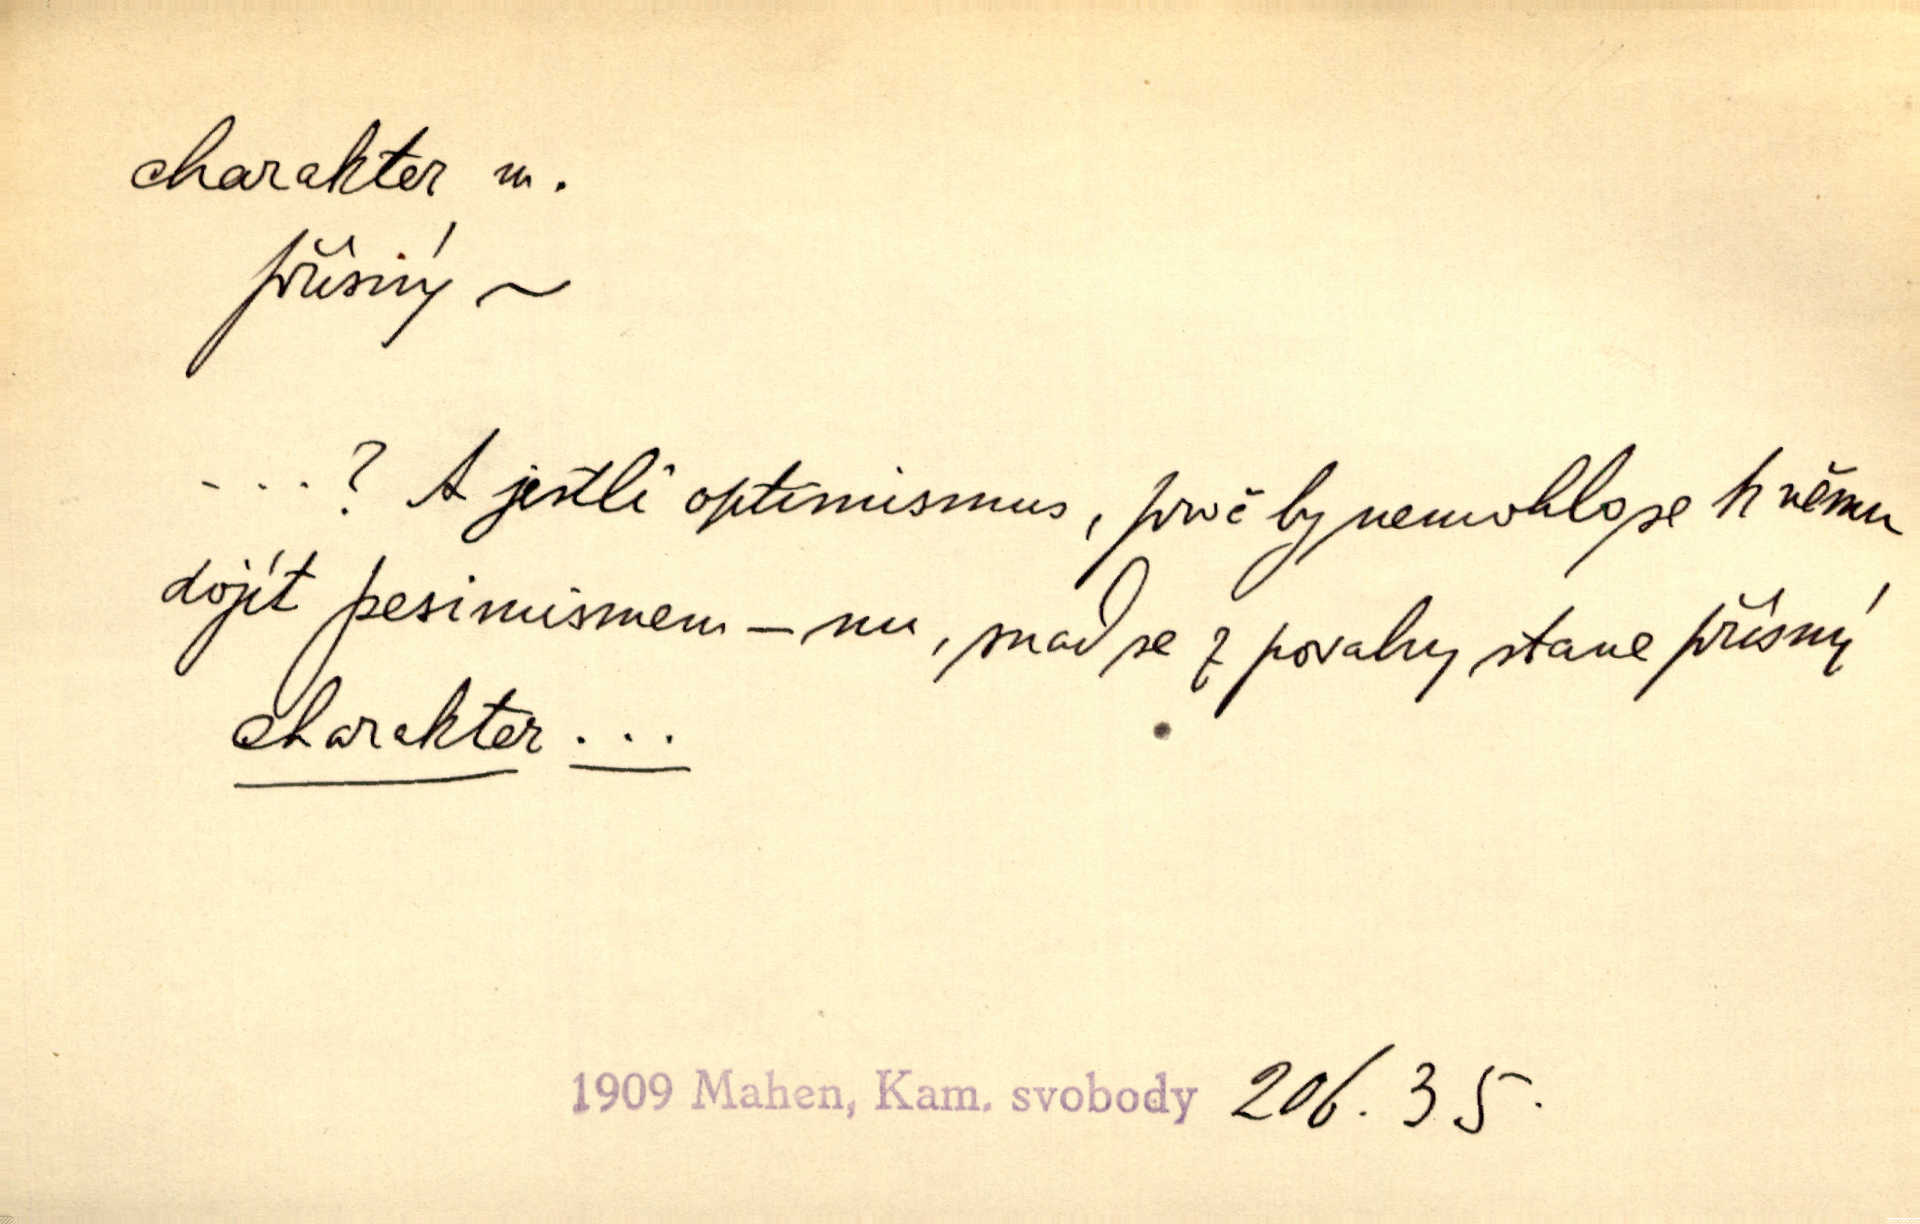 charakter m.
přísný ~
...? A jestli optimismus, proč by nemohlo se k němu
dojít pesimismem – nu, snad se z povahy stane přísný
charakter ...
1909 Mahen, Kam. svobody 206. 35.